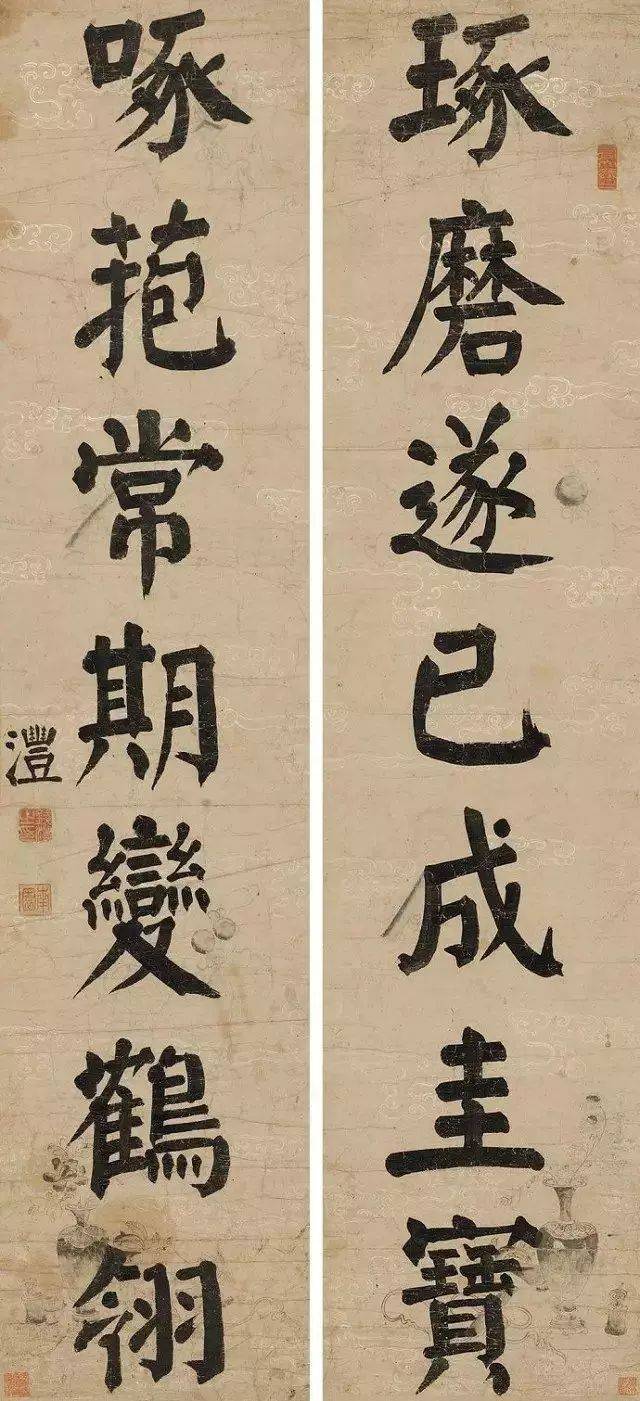 琢磨遂已成圭寶
啄菢常期變鶴翎
灃
南園